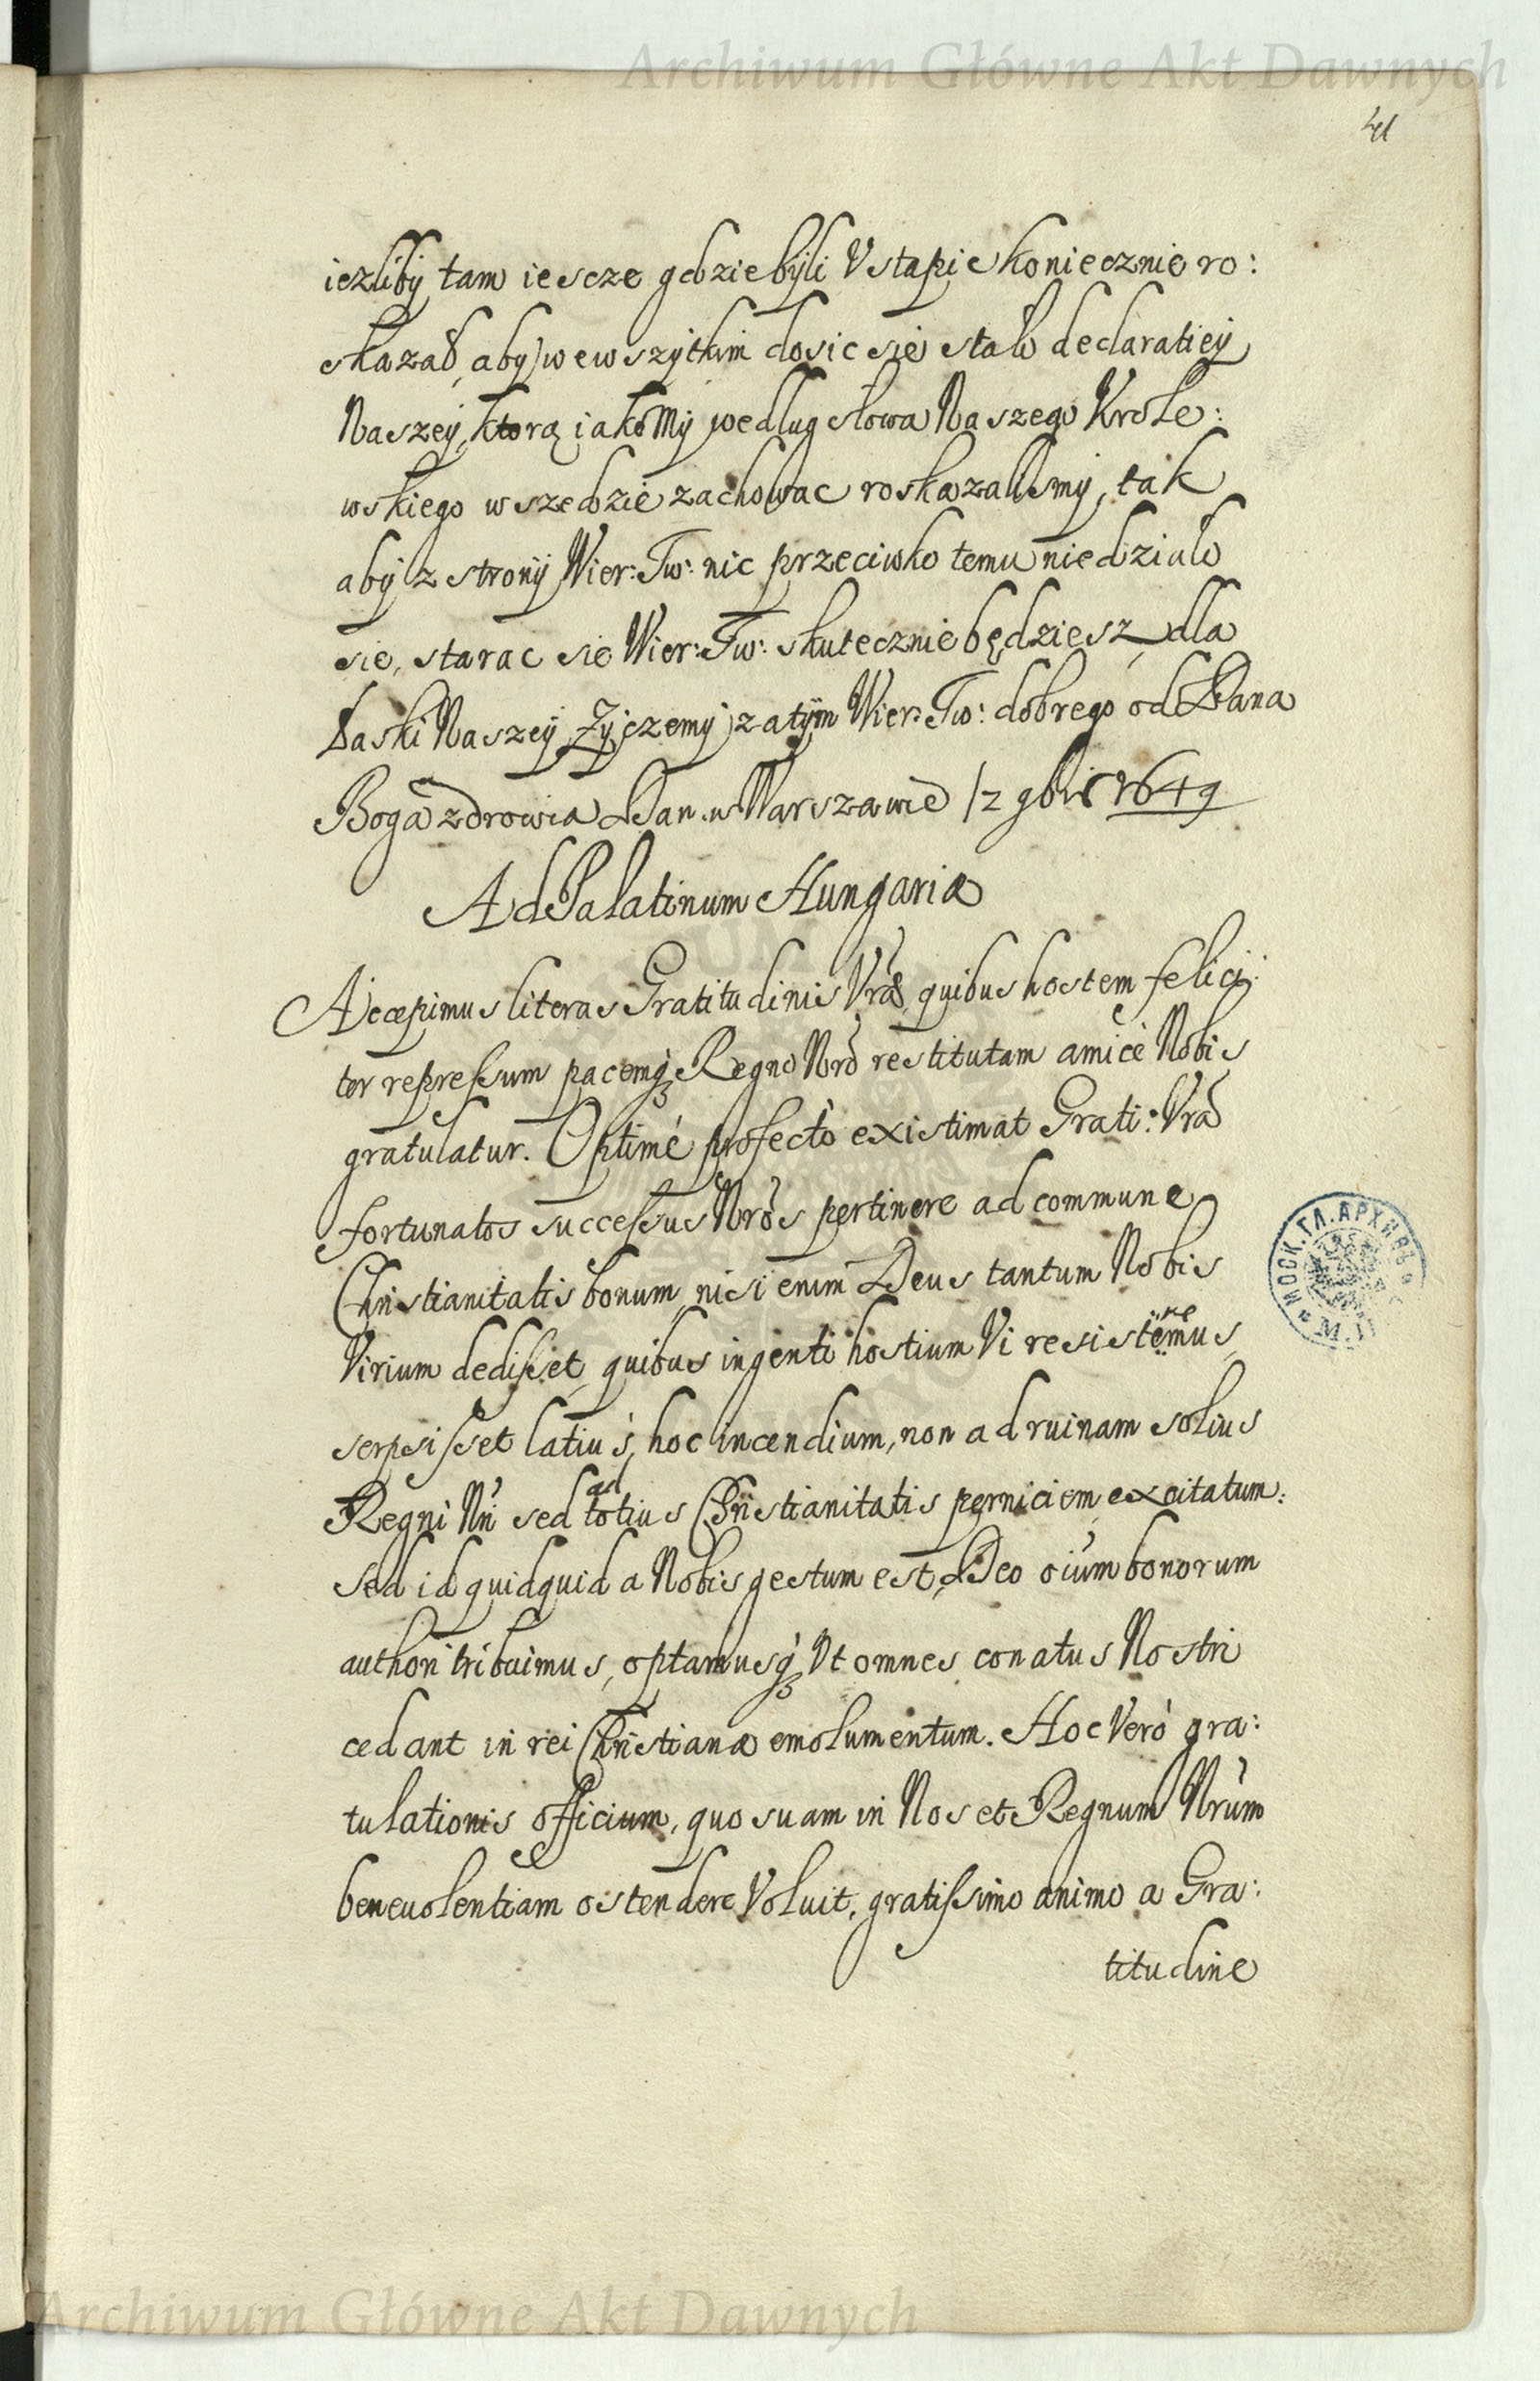 Archiwum Główne Akt Dawnych
41
iezliby tam iescze gdzie byli Vstąpić koniecznie ro:
skazał, aby we wszytkim dosic się stało declaratiey
Naszey, ktorą iako My według słowa Naszego Krole:
wskiego wszędzie zachować roskazalismy, tak
aby z strony Wier: Tw: nic przeciwko temu nie działo
się, starac się Wier: Tw: skutecznie będziesz, dla
Łaski Naszey, Zyczemy zatym Wier: Tw: dobrego od Pana
Boga zdrowia Dan w Warszawie 12 9bris 1649
Ad Palatinum Hungariæ
Accepimus literas Gratitudinis Vræ, quibus hostem felici:
ter repressum pacemq; Regno Nro restitutam amicè Nobis
gratulatur. Optimé profectò existimat Grati: Vra
fortunatos successus Nros pertinere ad commune
Christianitatis bonum, nisi enim Deus tantum Nobis
Virium dedisset, quibus ingenti hostium Vi resistemus,
re
serpsisset latius, hoc incendium, non ad ruinam solius
Regni Nri sed ad totius Christianitatis perniciem excitatum:
Sed id quidquid a Nobis gestum est, Deo oium bonorum
authori tribuimus, optamusq; Vt omnes conatus Nostri
cedant in rei Christianæ emolumentum. Hoc Verò gra:
tulationis officium, quo suam in Nos et Regnum Nrum
beneuolentiam ostendere Voluit, gratissimo animo a Gra:
titudine
МОСК. ГЛ. АРХИВЪ
М.
Archiwum Główne Akt Dawnych